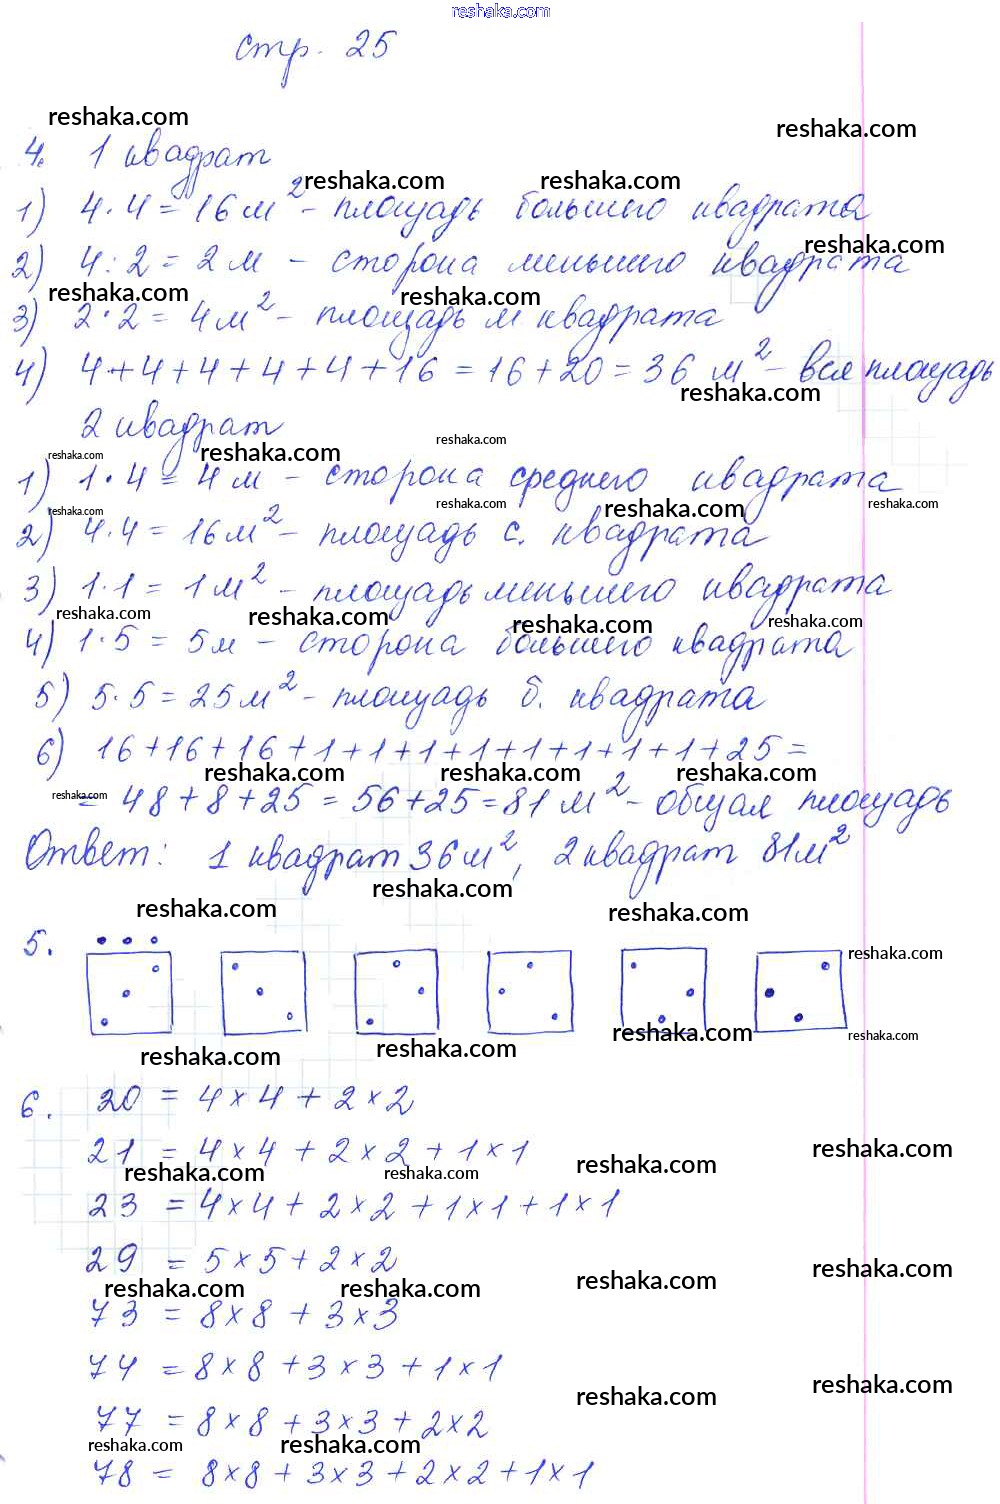 reshaka.com
стр. 25
reshaka.com
reshaka.com
4. 1 квадрат
reshaka.com reshaka.com
1) 4·4=16м²- площадь большего квадрата
reshaka.com
2) 4:2=2м - сторона меньшего квадрата
reshaka.com reshaka.com
3) 2·2=4м²- площадь м квадрата
4) 4+4+4+4+4+16=16+20=36 м²- вся площадь
reshaka.com
2 квадрат
reshaka.com
reshaka.com reshaka.com
1) 1·4=4м - сторона среднего квадрата
reshaka.com reshaka.com reshaka.com reshaka.com
2) 4·4=16м²- площадь с. квадрата
3) 1·1=1м²- площадь меньшего квадрата
reshaka.com reshaka.com reshaka.com reshaka.com
4) 1·5=5м - сторона большего квадрата
5) 5·5=25м²- площадь б. квадрата
6) 16+16+16+1+1+1+1+1+1+1+1+25=
reshaka.com reshaka.com reshaka.com
reshaka.com
=48+8+25=56+25=81м²- общая площадь
Ответ: 1 квадрат 36м², 2 квадрат 81м²
reshaka.com
reshaka.com reshaka.com
5.
reshaka.com
reshaka.com reshaka.com
reshaka.com reshaka.com
6. 20 = 4×4+2×2
21 = 4×4+2×2+1×1
reshaka.com
reshaka.com reshaka.com reshaka.com
23 = 4×4+2×2+1×1+1×1
29 = 5×5+2×2
reshaka.com
reshaka.com reshaka.com reshaka.com
73 = 8×8+3×3
74 = 8×8+3×3+1×1
reshaka.com reshaka.com
77 = 8×8+3×3+2×2
reshaka.com reshaka.com
78 = 8×8+3×3+2×2+1×1